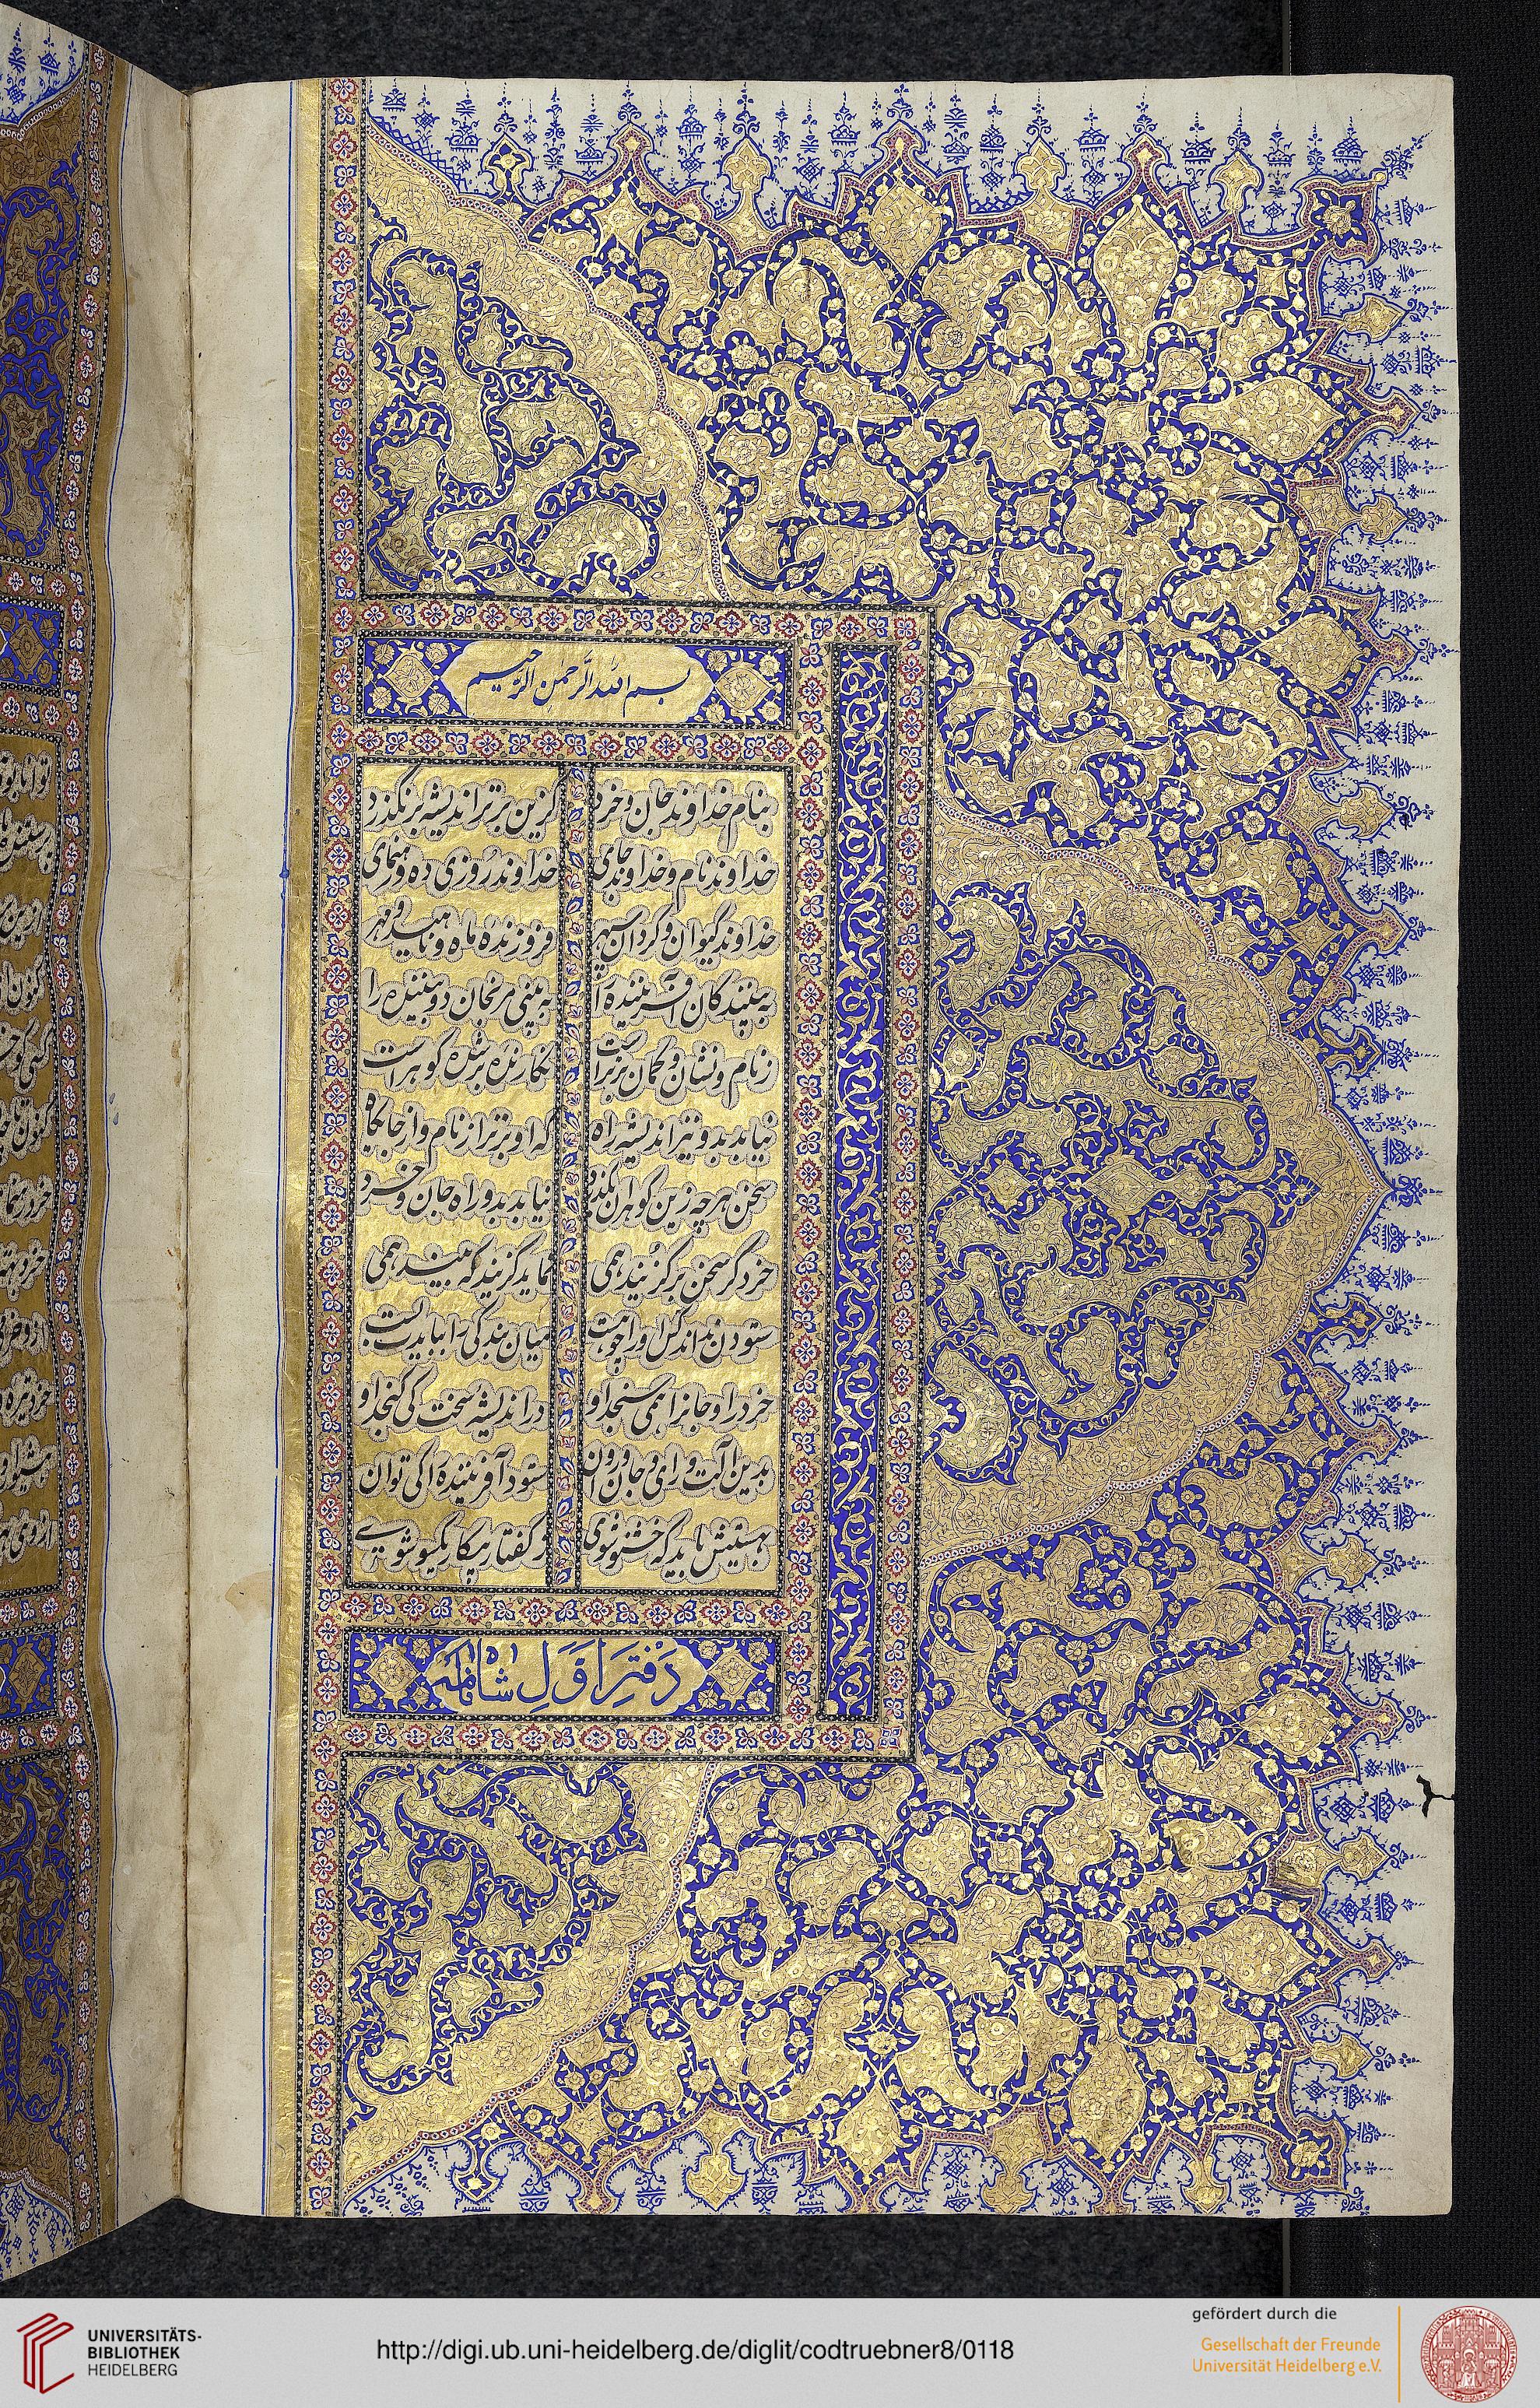 بسم الله الرحمن الرحیم
بنام خداوند جان و خرد کزین برتر اندیشه بر نگذرد
خداوند نام و خداوند جای خداوند روزی ده و رهنمای
خداوند کیوان و کردان سپهر فروزنده ماه و ناهید و مهر
به بینندکان آفریننده را نه بینی مرنجان دو بیننده را
ز نام و نشان و کمان برترست نکارنده بر شده کوهرست
نیابد بدو نیز اندیشه راه که او برتر از نام و از جایکاه
سخن هرچه زین کوهران بکذرد نیابد بدو راه جان و خرد
خرد کر سخن برکزیند همی همان برکزیند که بیند همی
ستودن نداند کس او را چو هست میان بندکی را ببایدت بست
خرد را و جانرا همی سنجد او در اندیشه سخت کی کنجد او
بدین آلت و رای و جان و روان ستود آفریننده را کی توان
بهستیش باید که خستو شوی ز کفتار بیکار یکسو شوی
دفتر اول شاهنامه
UNIVERSITÄTS-
BIBLIOTHEK
HEIDELBERG
http://digi.ub.uni-heidelberg.de/diglit/codtruebner8/0118
gefördert durch die
Gesellschaft der Freunde
Universität Heidelberg e.V.